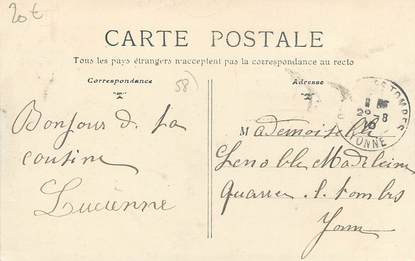 20t
CARTE POSTALE
Tous les pays étrangers n'acceptent pas la correspondance au recto
Correspondance
58)
Adresse
Bonjour de ta
cousine
Lucienne
Mademoiselle
Lenoble Madeleine
quarre. l. tombes
Yonn
S TOMBES
29 -8
YONNE